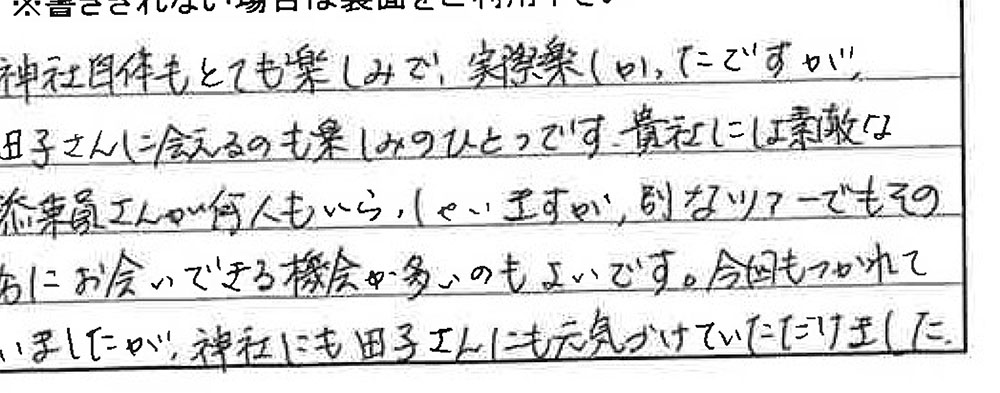 ※書ききれない場合は裏面をご利用下さい
神社自体もとても楽しみで、実際楽しかったですが、
田子さんに会えるのも楽しみのひとつです。貴社には素敵な
添乗員さんが何人もいらっしゃいますが、別なツアーでもその
方にお会いできる機会が多いのもよいです。今回もつかれて
いましたが、神社にも田子さんにも元気づけていただけました。